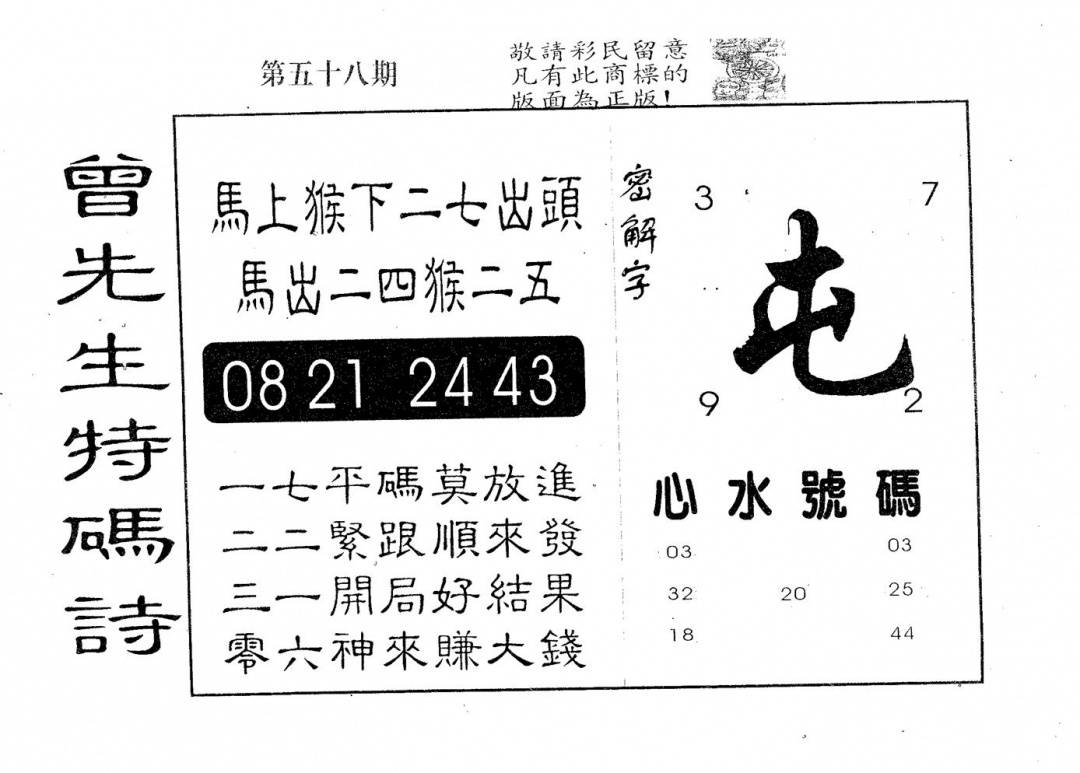 第五十八期
敬請彩民留意
凡有此商標的
版面為正版!
曾先生特碼詩
馬上猴下二七出頭
馬出二四猴二五
08 21 24 43
一七平碼莫放進
二二緊跟順來發
三一開局好結果
零六神來賺大錢
密解字
3 7
屯
9 2
心水號碼
03 03
32 20 25
18 44